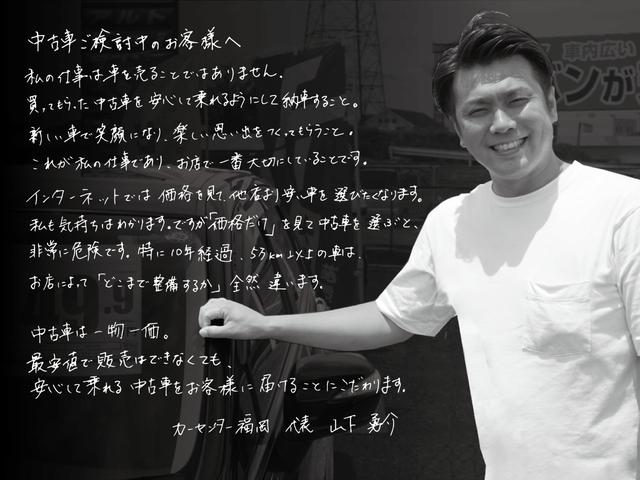 中古車ご検討中のお客様へ
私の仕事は車を売ることではありません。
買ってもらった中古車を安心して乗れるようにして納車すること。
新しい車で笑顔になり、楽しい思い出をつくってもらうこと。
これが私の仕事であり、お店で一番大切にしていることです。
インターネットでは価格を見て、他店より安い車を選びたくなります。
私も気持ちはわかります。ですが「価格だけ」を見て中古車を選ぶと、
非常に危険です。特に10年経過、5万km以上の車は、
お店によって「どこまで整備するか」全然違います。
中古車は一物一価。
最安値で販売はできなくても、
安心して乗れる中古車をお客様に届けることにこだわります。
カーセンター福岡 代表 山下 勇介
車内広い
バンが